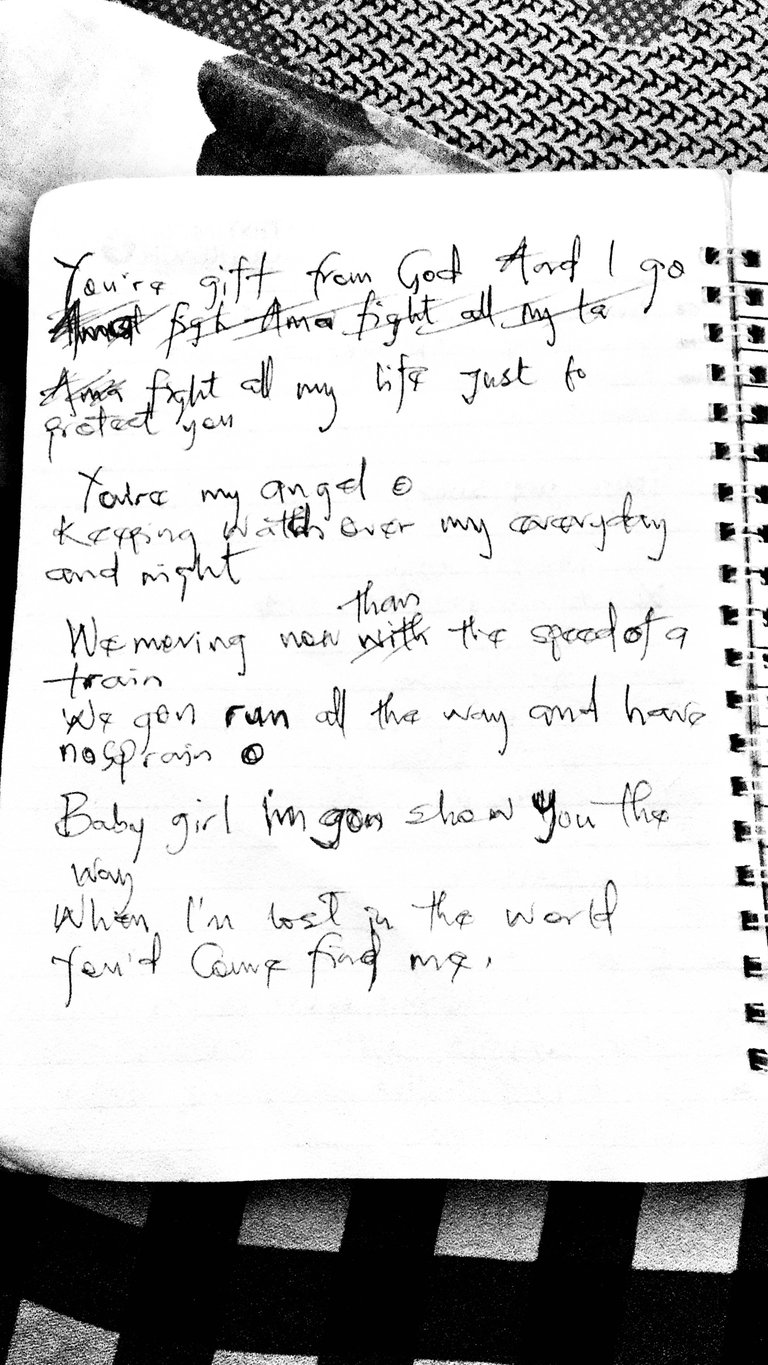 You're gift from God And I go
figh Ama fight all my la
Ama fight all my life Just to
protect you
You're my angel
Keeping watch over my everyday
and night
than
We moving now with the speed of a
train
We gon run all the way and have
no sprain
Baby girl I'm gon show you the
way
When I'm lost in the world
You'd Come find me.